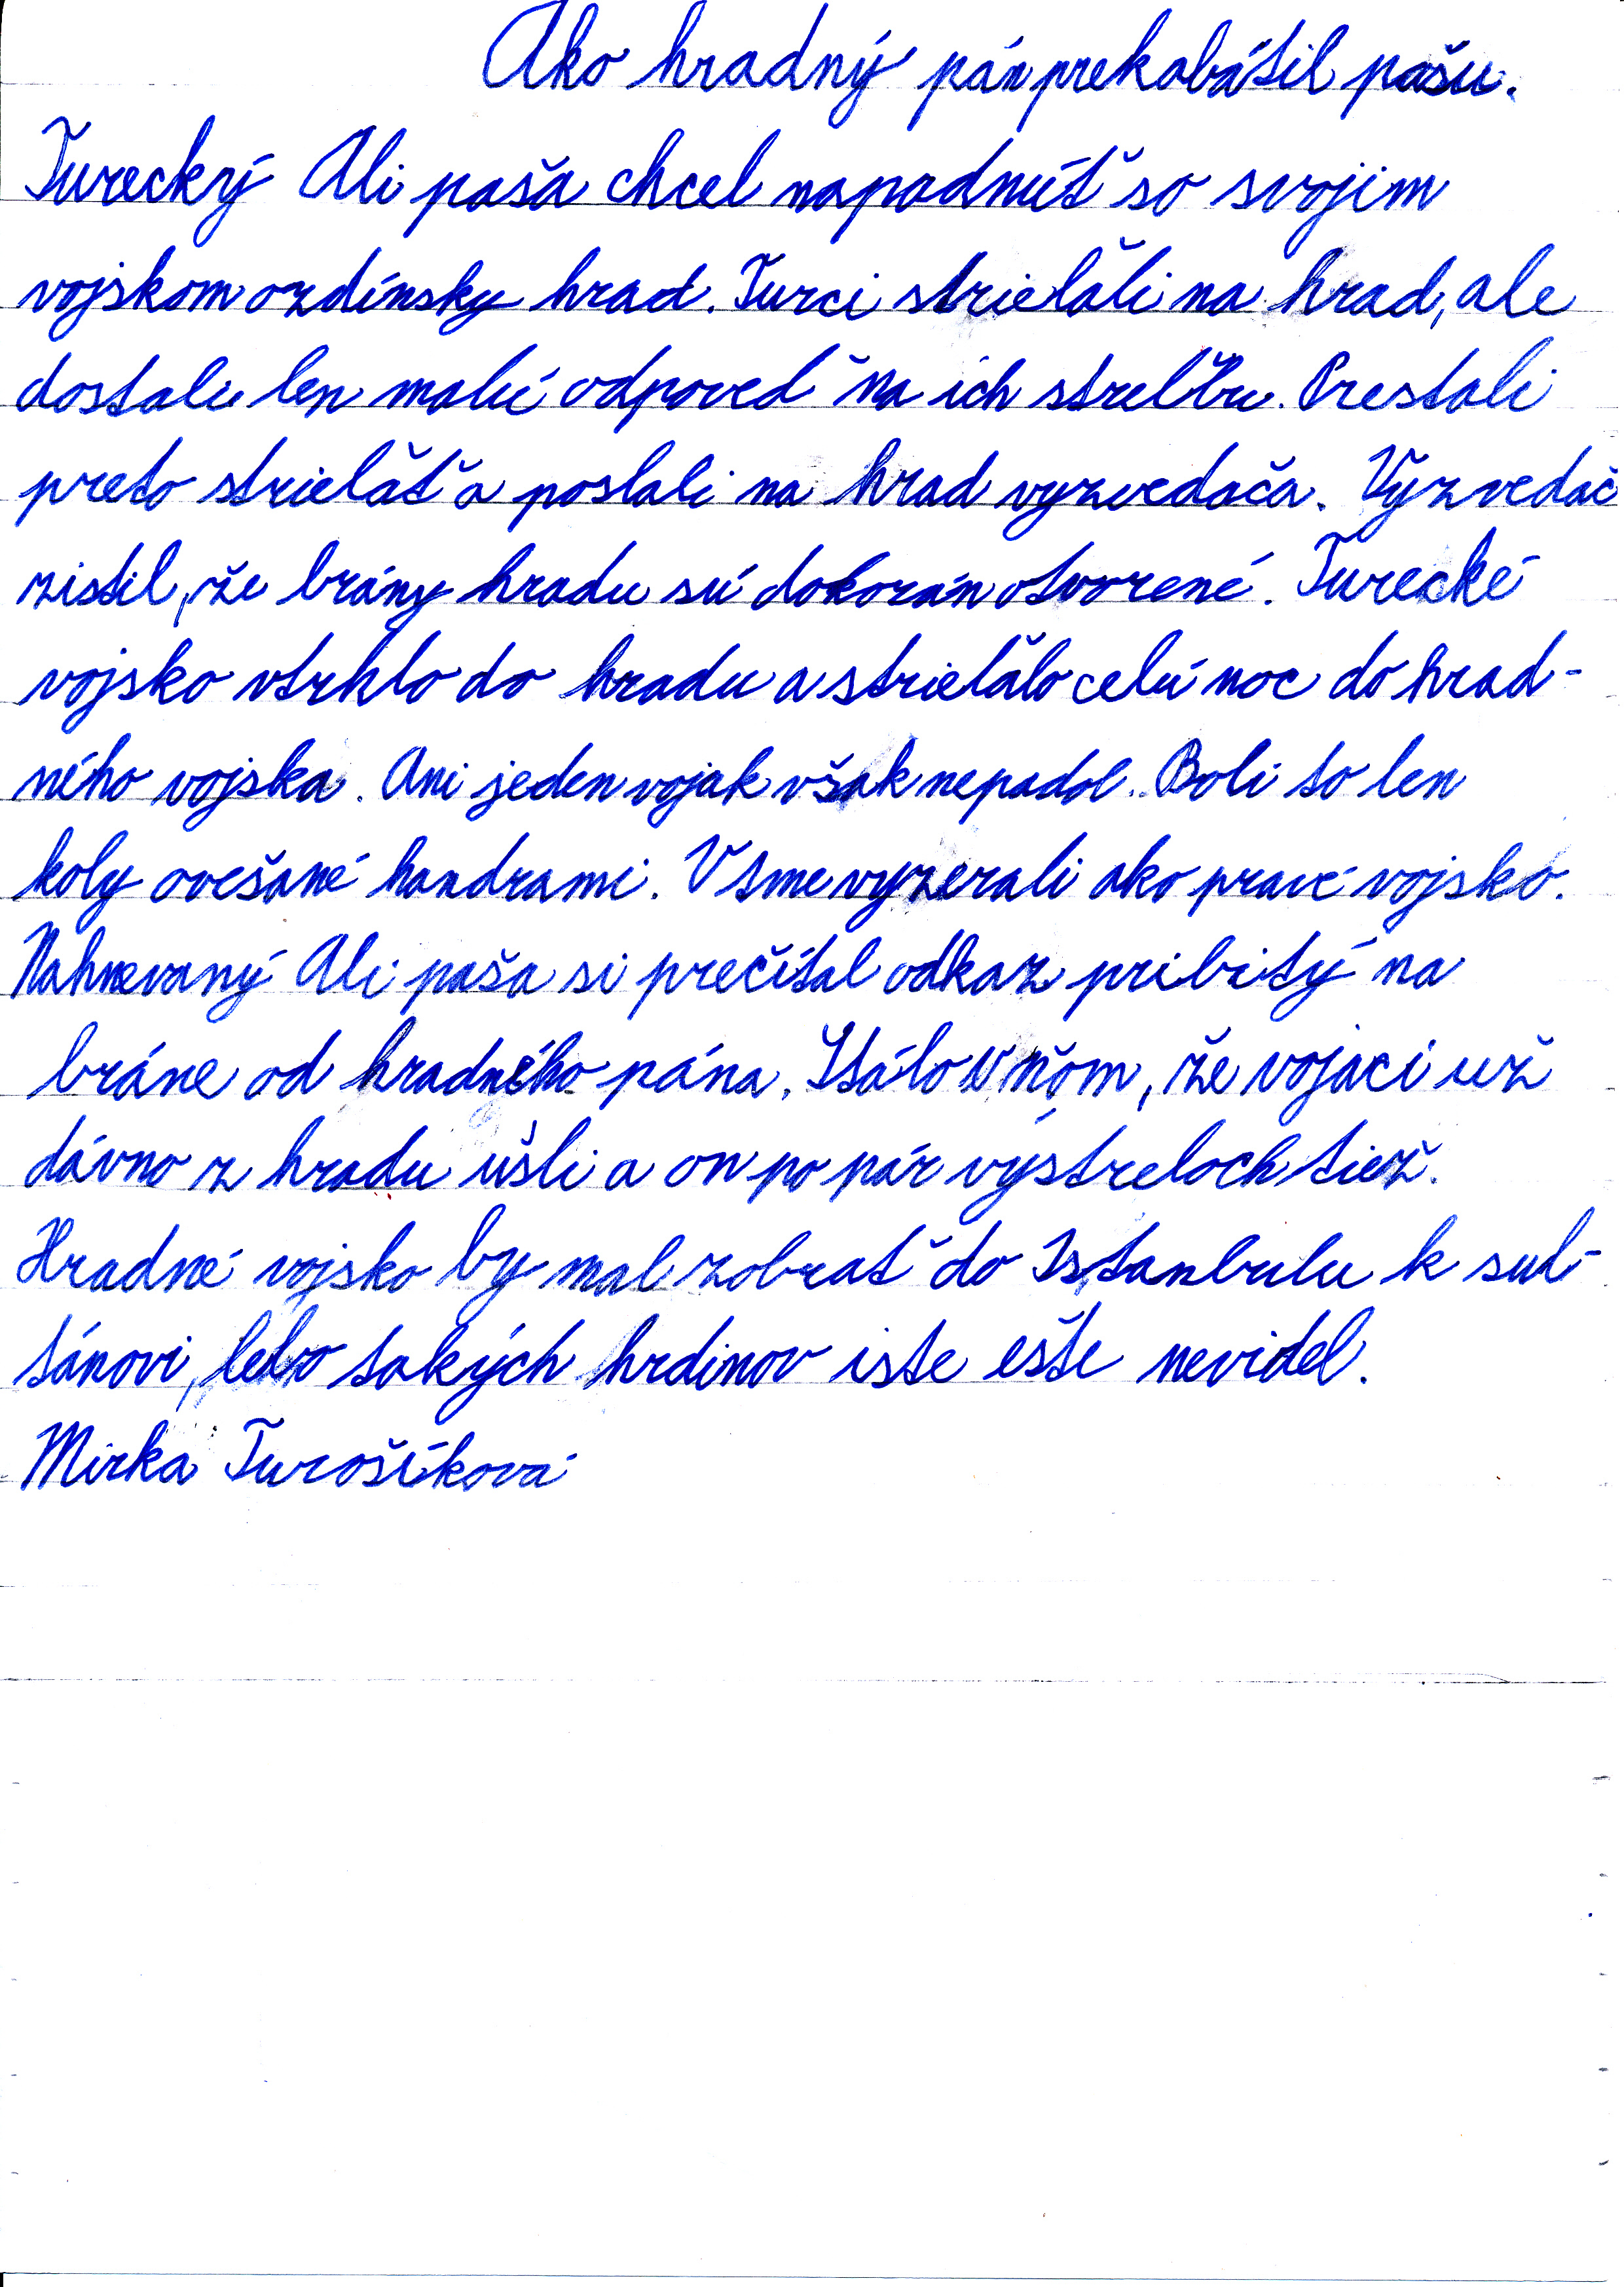 Ako hradný pán prekabátil pašu.
Turecký Ali paša chcel napadnúť so svojim
vojskom ozdínsky hrad. Turci strieľali na hrad, ale
dostali len malú odpoveď na ich streľbu. Prestali
preto strieľať a poslali na hrad vyzvedača. Vyzvedač
zistil, že brány hradu sú dokorán otvorené. Turecké
vojsko vtrhlo do hradu a strieľalo celú noc do hrad-
ného vojska. Ani jeden vojak však nepadol. Boli to len
koly ovešané handrami. V tme vyzerali ako pravé vojsko.
Nahnevaný Ali paša si prečítal odkaz pribitý na
bráne od hradného pána. Stálo v ňom, že vojaci už
dávno z hradu ušli a on po pár výstreloch tiež.
Hradné vojsko by mal zobrať do Istanbulu k sul-
tánovi, lebo takých hrdinov iste ešte nevidel.
Mirka Turošíková